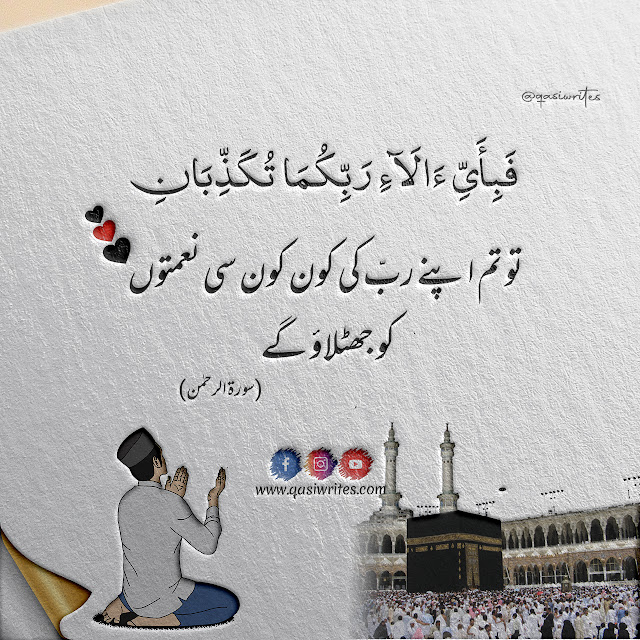 @qasiwrites
فَبِأَيِّ ءَالَآءِ رَبِّكُمَا تُكَذِّبَانِ
تو تم اپنے ربّ کی کون کون سی نعمتوں
کو جھٹلاؤ گے
(سورۃ الرحمٰن)
www.qasiwrites.com